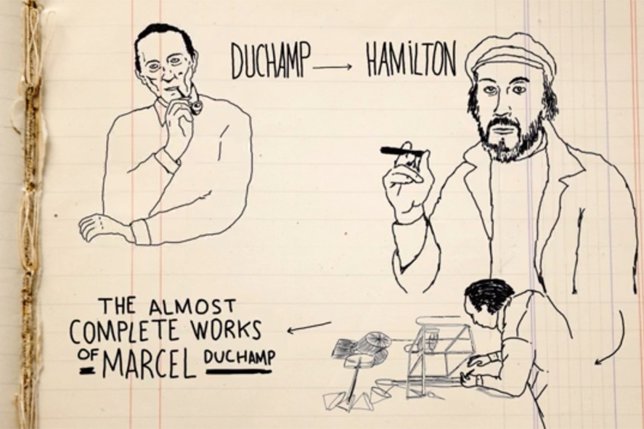 DUCHAMP → HAMiLTON
THE ALMOST
COMPLETE WORKS
OF MARCEL DUCHAMP